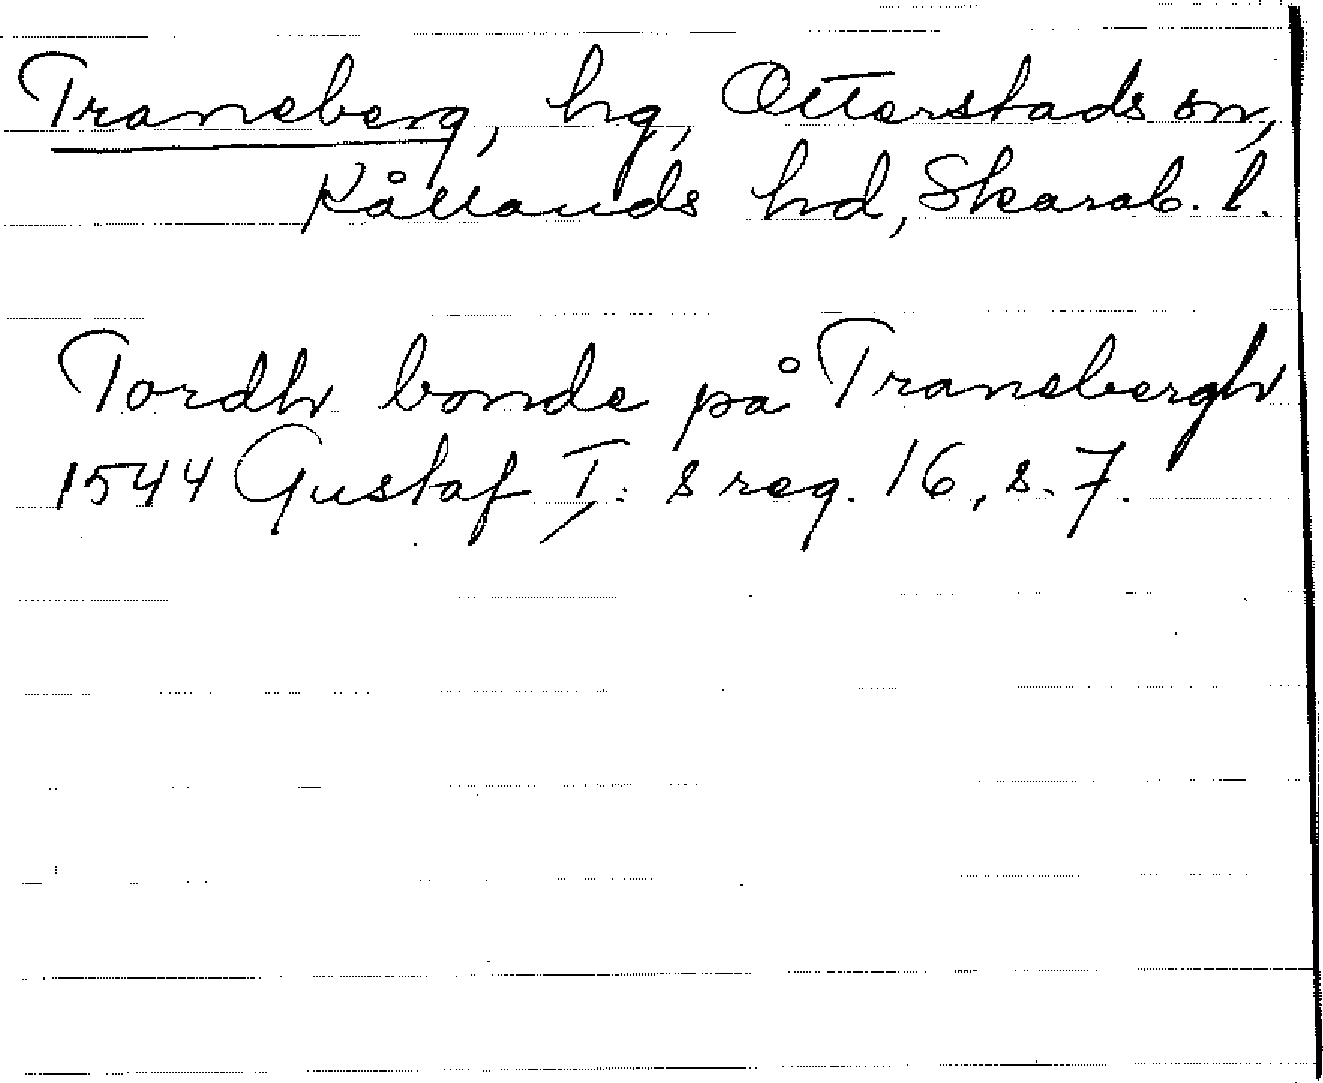 Traneberg, hg, Otterstads sn,
Kållands hd, Skarab. l.
Tordh bonde på Tranebergh
1544 Gustaf I: s reg. 16, s. 7.